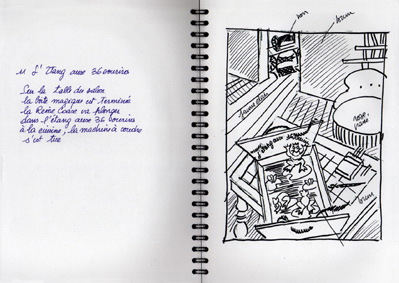 11 L'Etang aux 36 souries
Sur la table du salon
la boite magique est terminée
la Reine Cosine va plonger
dans l'étang aux 36 souries
à la cuisine, la machine à coudre
s'est tue
brun
jaune clair
rose
brun